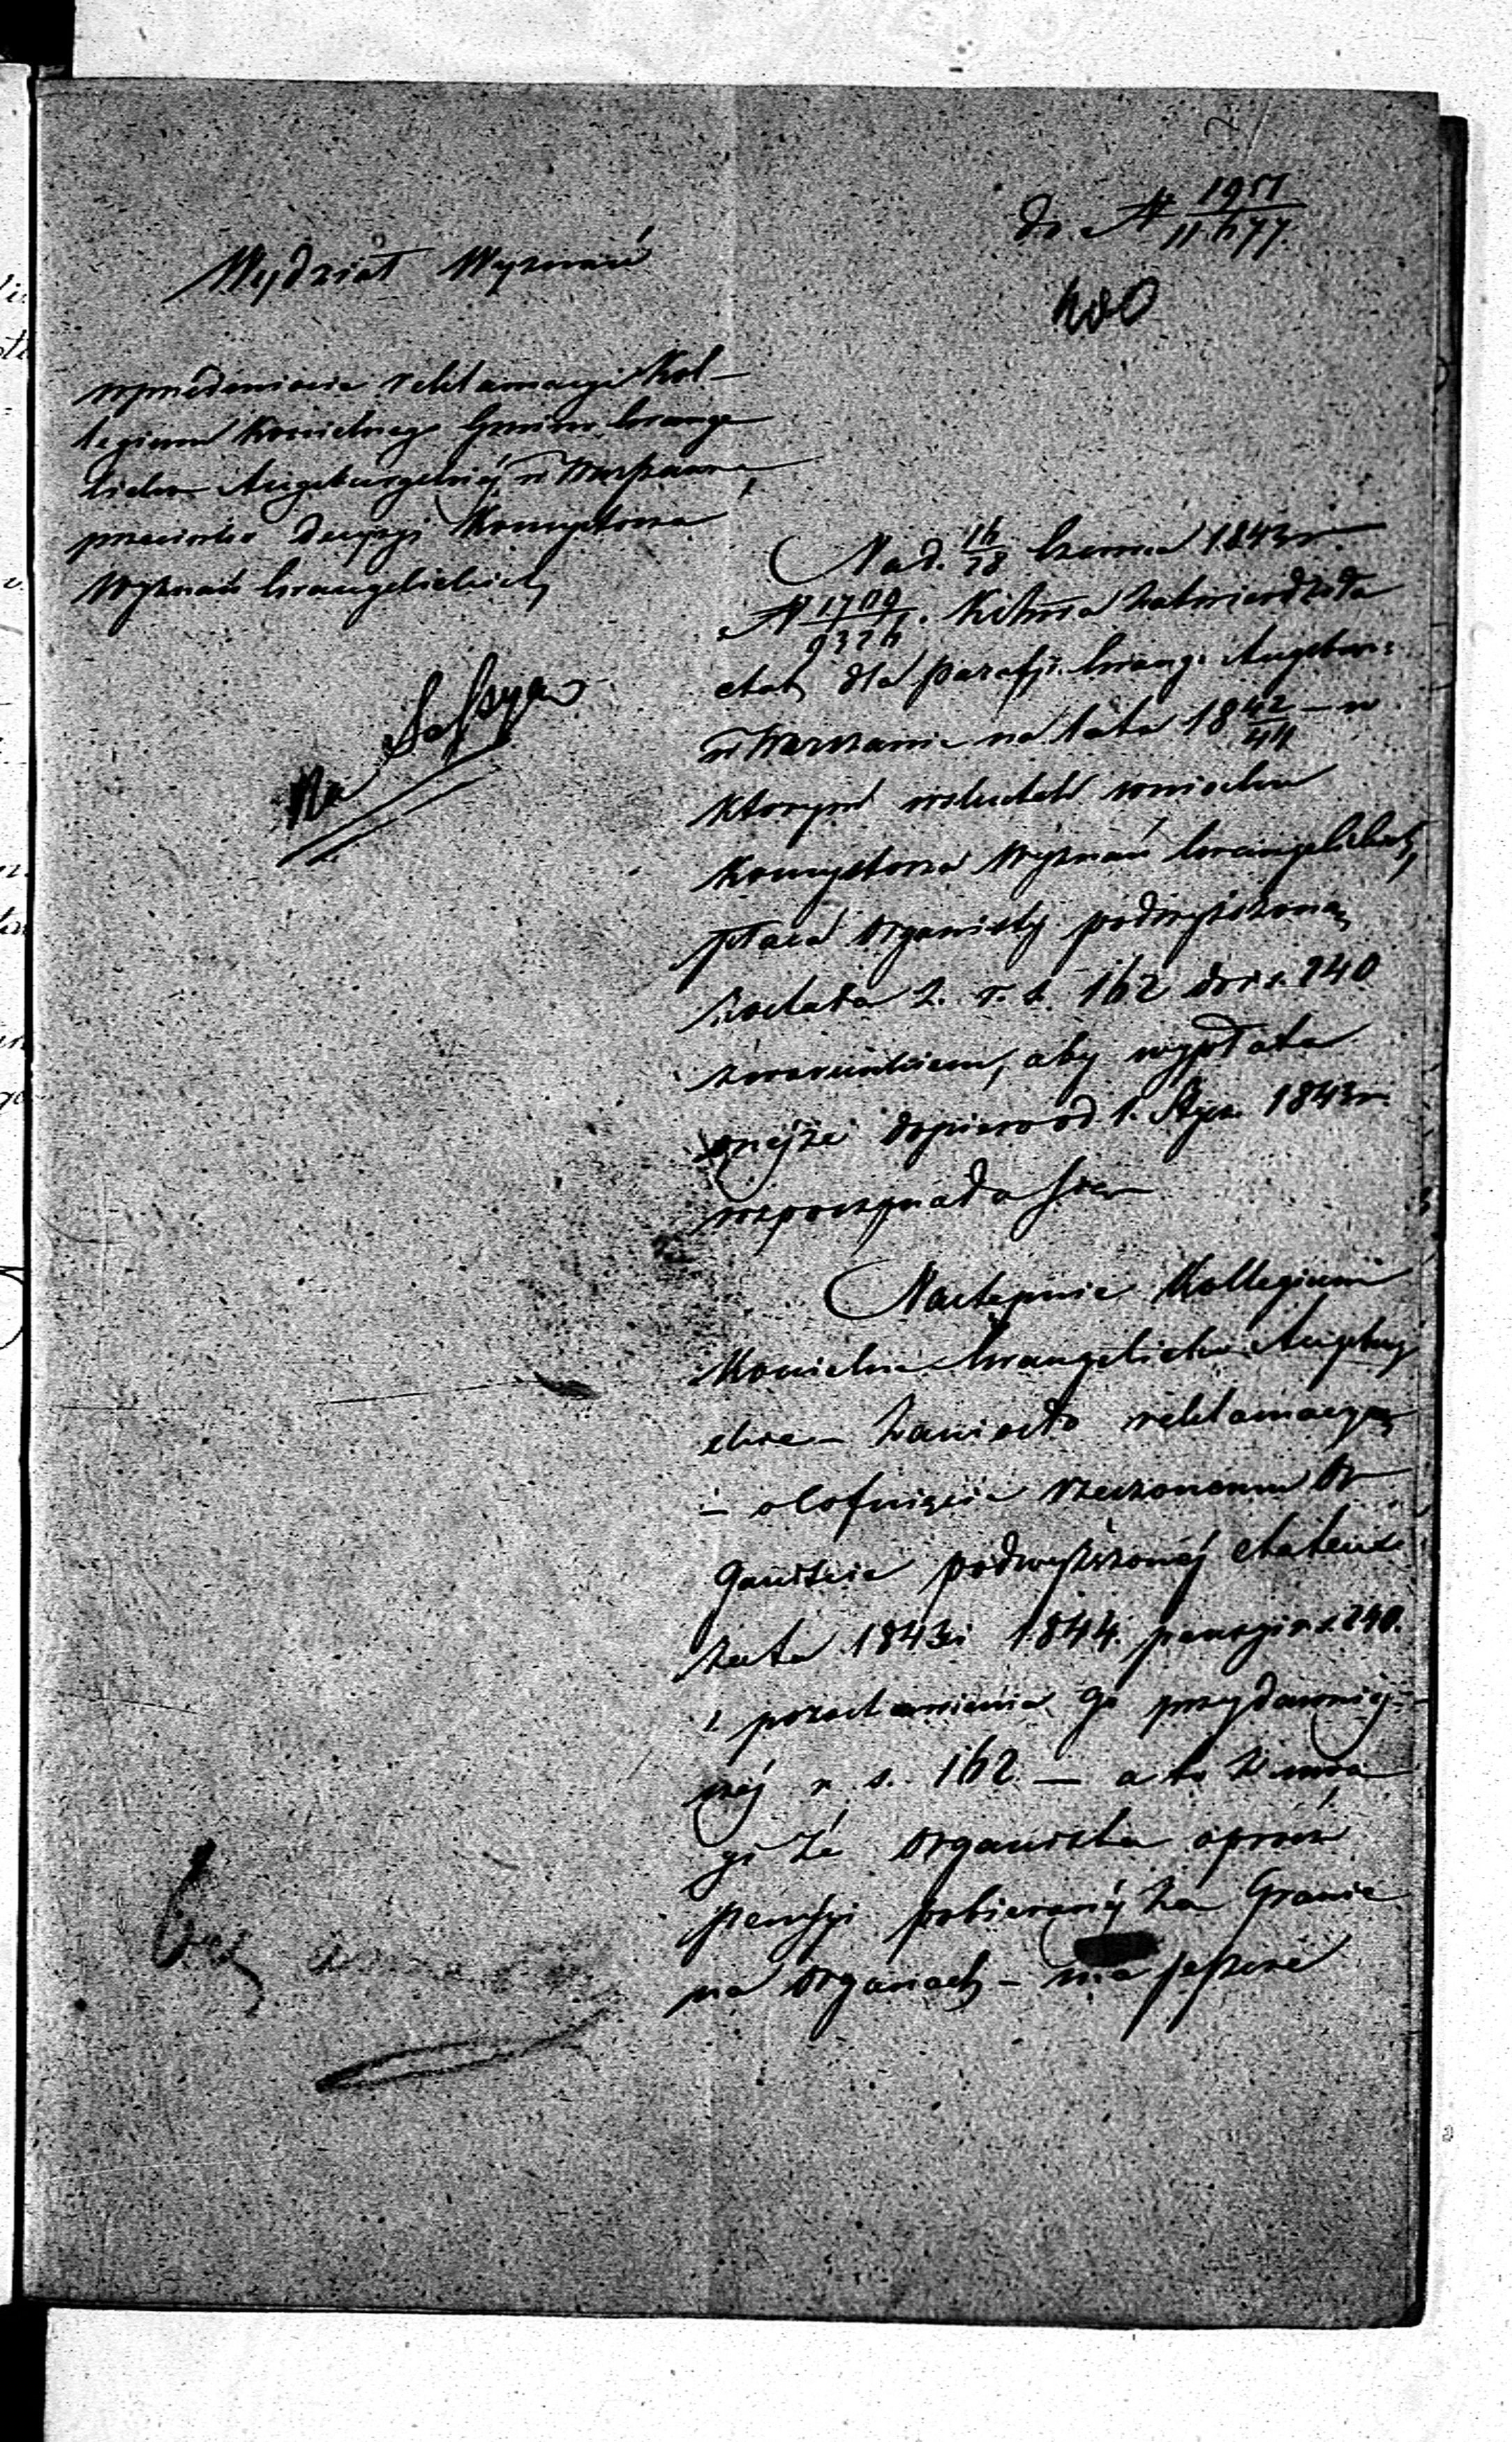 do N 1951/11.677.
Wydział Wyznań
480
w przedmiocie reklamacyi Kol-
legium Kościelnego Gminy Ewange
licko Augsburgskiéj w Warszawie,
przeciwko decyzyi Konsystorza
Wyznań Ewangelickich
Na Sessyą
Na d. 16/28 Czerwca 1843 r.
N 1709/9326. Kommissya zatwierdziła
etat dla parafji Ewang. Augsbur:
w Warszawie na lata 18 42/44 — w
którym wskutek wniosku
Konsystorza Wyznań Ewangelickich,
płaca Organisty podwyższoną
została z r. s. 162 do r. s. 240
z warunkiem, aby wypłata
onéjże dopiero od 1. Stycz. 1843 r.
rozpoczynała się
Następnie Kollegium
Kościelne Ewangelicko Augsburg
skie — zaniosło reklamacyą
— o cofnięcie rzeczonemu Or
ganiście podwyższonéj etatem
za lata 1843 i 1844. pensyi r. s. 240.
i pozostawienie go przy dawniej-
széj r. s. 162 — a to z uwa
gi że Organista oprócz
pensyi pobieranéj za Granie
na Organach — ma jeszcze